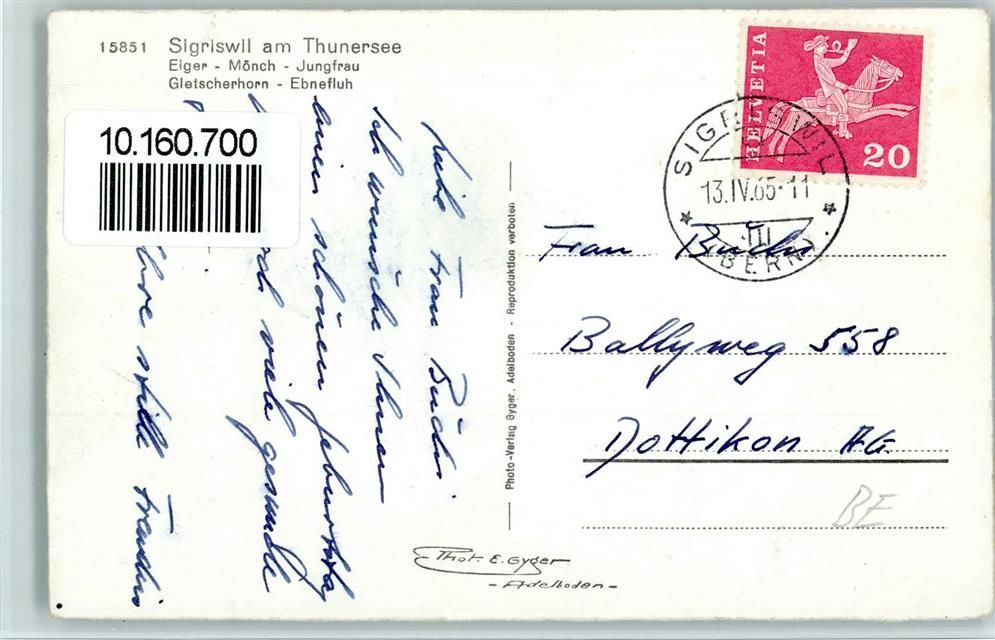 15851 Sigriswil am Thunersee
Eiger - Mönch - Jungfrau
Gletscherhorn - Ebnefluh
10.160.700
HELVETIA
20
SIGRISWIL
13.IV.65-11
(BERN)
Frau Büchi
Ich wünsche Ihnen
einen schönen Geburtstag
und viele gesunde
Ihre stille Freundin
Photo-Verlag Gyger, Adelboden - Reproduktion verboten
Frau Büchi
Ballyweg 558
Dottikon AG.
BE
Phot. E. Gyger
- Adelboden -